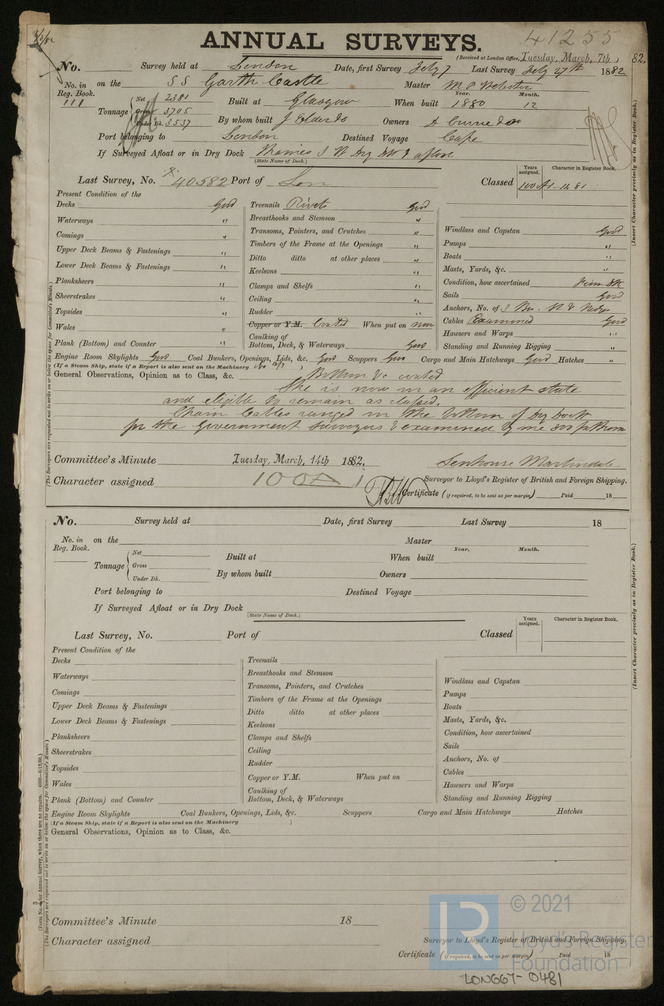 ANNUAL SURVEYS.
41255
(Received at London Office, Tuesday, March, 7th, 1882.
No. Survey held at London Date, first Survey Feby 7 Last Survey Feby 27th 1882
No. in Reg. Book. 111 on the SS Garth Castle Master M P Webster
Tonnage Net 2381 Gross 3705 Under Dk. 3537 Built at Glasgow When built Year. 1880 Month. 12
By whom built J Elder & Co Owners D Currie & Co
Port belonging to London Destined Voyage Cape
If Surveyed Afloat or in Dry Dock
(State Name of Dock.)
Last Survey, No. 40582 Port of Lon Classed Years assigned. 100A1 Character in Register Book. 12.81
(Insert Character precisely as in Register Book.)
Present Condition of the
Decks Good Treenails Rivets Good
Waterways " Breasthooks and Stemson " Windlass and Capstan Good
Comings " Transoms, Pointers, and Crutches " Pumps "
Upper Deck Beams & Fastenings " Timbers of the Frame at the Openings " Boats "
Lower Deck Beams & Fastenings " Ditto ditto at other places " Masts, Yards, &c. "
Planksheers " Keelsons " Condition, how ascertained
Sheerstrakes " Clamps and Shelfs " Sails Good
Topsides " Ceiling " Anchors, No. of
Wales " Rudder " Cables Examined Good
Copper or Y.M. Coated When put on now Hawsers and Warps "
Plank (Bottom) and Counter " Caulking of Bottom, Deck, & Waterways Good Standing and Running Rigging "
Engine Room Skylights Good Coal Bunkers, Openings, Lids, &c. Good Scuppers Good Cargo and Main Hatchways Good Hatches "
(If a Steam Ship, state if a Report is also sent on the Machinery
General Observations, Opinion as to Class, &c. Bottom &c coated
She is now in an efficient state
and eligible to remain as classed.
Chain Cables ranged in the bottom of dry dock
for the Government Surveyors & examined by me
Committee's Minute Tuesday, March, 14th 1882. Senhouse Martindale
Character assigned 100A1 Surveyor to Lloyd's Register of British and Foreign Shipping.
Certificate (if required, to be sent as per margin) Paid 18
No. Survey held at Date, first Survey Last Survey 18
No. in Reg. Book. on the Master
Tonnage Net Gross Under Dk. Built at When built Year. Month.
By whom built Owners
Port belonging to Destined Voyage
If Surveyed Afloat or in Dry Dock
(State Name of Dock.)
Last Survey, No. Port of Classed Years assigned. Character in Register Book.
(Insert Character precisely as in Register Book.)
Present Condition of the
Decks Treenails
Waterways Breasthooks and Stemson Windlass and Capstan
Comings Transoms, Pointers, and Crutches Pumps
Upper Deck Beams & Fastenings Timbers of the Frame at the Openings Boats
Lower Deck Beams & Fastenings Ditto ditto at other places Masts, Yards, &c.
Planksheers Keelsons Condition, how ascertained
Sheerstrakes Clamps and Shelfs Sails
Topsides Ceiling Anchors, No. of
Wales Rudder Cables
Copper or Y.M. When put on Hawsers and Warps
Plank (Bottom) and Counter Caulking of Bottom, Deck, & Waterways Standing and Running Rigging
Engine Room Skylights Coal Bunkers, Openings, Lids, &c. Scuppers Cargo and Main Hatchways Hatches
(If a Steam Ship, state if a Report is also sent on the Machinery )
General Observations, Opinion as to Class, &c.
Committee's Minute 18
Character assigned Surveyor to Lloyd's Register of British and Foreign Shipping.
Certificate (if required, to be sent as per margin) Paid 18
LR © 2021
Lloyd's Register
Foundation
LON667-0481